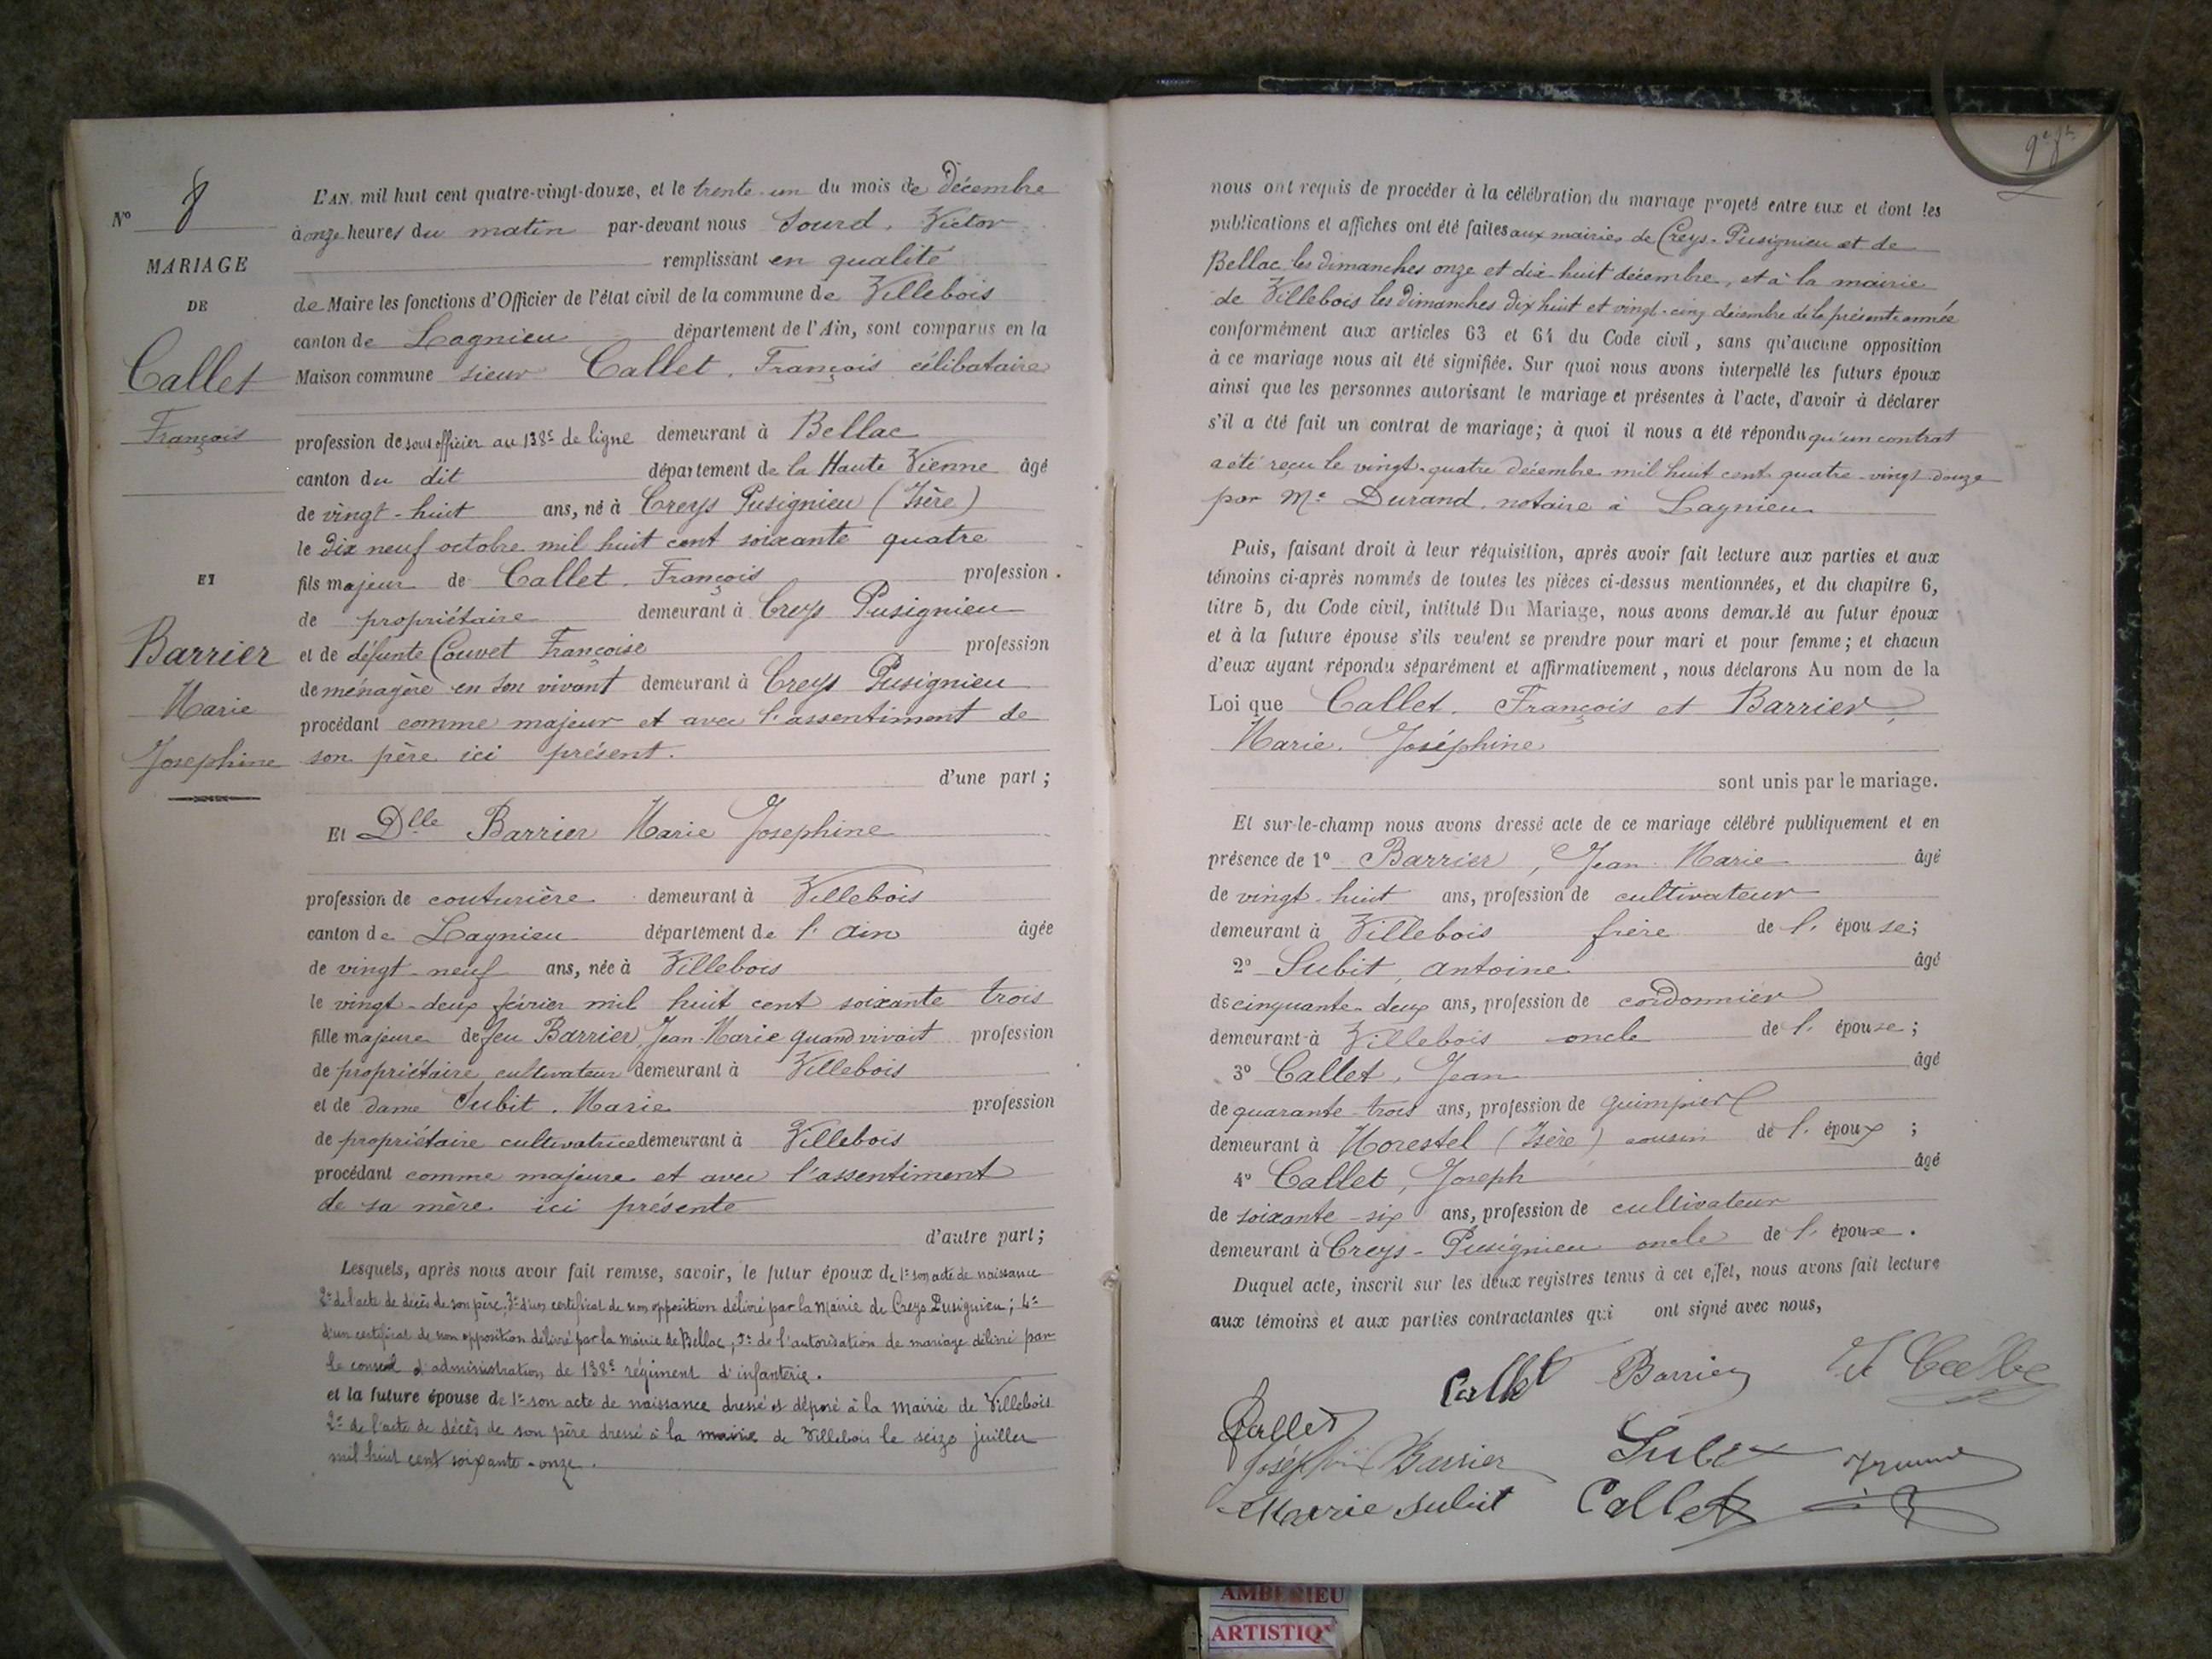 N° 8
MARIAGE
DE
Callet
François
ET
Barrier
Marie
Josephine
L'AN mil huit cent quatre-vingt-douze, et le trente-un du mois de Décembre
à onze heures du matin par-devant nous Sourd, Victor
remplissant en qualité
de Maire les fonctions d'Officier de l'état civil de la commune de Villebois
canton de Lagnieu département de l'Ain, sont comparus en la
Maison commune sieur Callet, François célibataire
profession de sous officier au 138e de ligne demeurant à Bellac
canton du dit département de la Haute Vienne âgé
de vingt-huit ans, né à Creys Pusignieu (Isère)
le dix neuf octobre mil huit cent soixante quatre
fils majeur de Callet. François profession
de propriétaire demeurant à Creys Pusignieu
et de défunte Couvet Françoise profession
de ménagère en son vivant demeurant à Creys Pusignieu
procédant comme majeur et avec l'assentiment de
son père ici présent.
d'une part;
Et Dlle Barrier Marie Josephine
profession de couturière demeurant à Villebois
canton de Lagnieu département de l'Ain âgée
de vingt-neuf ans, née à Villebois
le vingt-deux février mil huit cent soixante trois
fille majeure de feu Barrier, Jean-Marie quand vivait profession
de propriétaire cultivateur demeurant à Villebois
et de dame Subit. Marie profession
de propriétaire cultivatrice demeurant à Villebois
procédant comme majeure et avec l'assentiment
de sa mère ici présente
d'autre part;
Lesquels, après nous avoir fait remise, savoir, le futur époux de 1° son acte de naissance
2° de l'acte de décès de son père; 3° d'un certificat de non opposition délivré par la Mairie de Creys Pusignieu; 4°
d'un certificat de non opposition délivré par la Mairie de Bellac; 5° de l'autorisation de mariage délivré par
le conseil d'administration de 138e régiment d'infanterie.
et la future épouse de 1° son acte de naissance dressé et déposé à la Mairie de Villebois
2° de l'acte de décès de son père dressé à la mairie de Villebois le seize juillet
mil huit cent soixante-onze.
nous ont requis de procéder à la célébration du mariage projeté entre eux et dont les
publications et affiches ont été faites aux mairies de Creys-Pusignieu et de
Bellac les dimanches onze et dix-huit décembre, et à la mairie
de Villebois les dimanches dix huit et vingt-cinq décembre de la présente année
conformément aux articles 63 et 64 du Code civil, sans qu'aucune opposition
à ce mariage nous ait été signifiée. Sur quoi nous avons interpellé les futurs époux
ainsi que les personnes autorisant le mariage et présentes à l'acte, d'avoir à déclarer
s'il a été fait un contrat de mariage; à quoi il nous a été répondu qu'un contrat
a été reçu le vingt-quatre décembre mil huit cent quatre-vingt-douze
par Me Durand, notaire à Lagnieu
Puis, faisant droit à leur réquisition, après avoir fait lecture aux parties et aux
témoins ci-après nommés de toutes les pièces ci-dessus mentionnées, et du chapitre 6,
titre 5, du Code civil, intitulé Du Mariage, nous avons demandé au futur époux
et à la future épouse s'ils veulent se prendre pour mari et pour femme; et chacun
d'eux ayant répondu séparément et affirmativement, nous déclarons Au nom de la
Loi que Callet. François et Barrier,
Marie. Joséphine
sont unis par le mariage.
Et sur-le-champ nous avons dressé acte de ce mariage célébré publiquement et en
présence de 1° Barrier, Jean-Marie âgé
de vingt-huit ans, profession de cultivateur
demeurant à Villebois frère de l'épouse;
2° Subit, Antoine âgé
de cinquante-deux ans, profession de cordonnier
demeurant à Villebois oncle de l'épouse;
3° Callet, Jean âgé
de quarante-trois ans, profession de guimpier
demeurant à Morestel (Isère) cousin de l'époux;
4° Callet, Joseph âgé
de soixante-six ans, profession de cultivateur
demeurant à Creys-Pusignieu oncle de l'époux.
Duquel acte, inscrit sur les deux registres tenus à cet effet, nous avons fait lecture
aux témoins et aux parties contractantes qui ont signé avec nous,
Callet Barrier
Callet
Joséphine Barrier Subit
Marie Subit Callet
AMBERIEU
ARTISTIQ